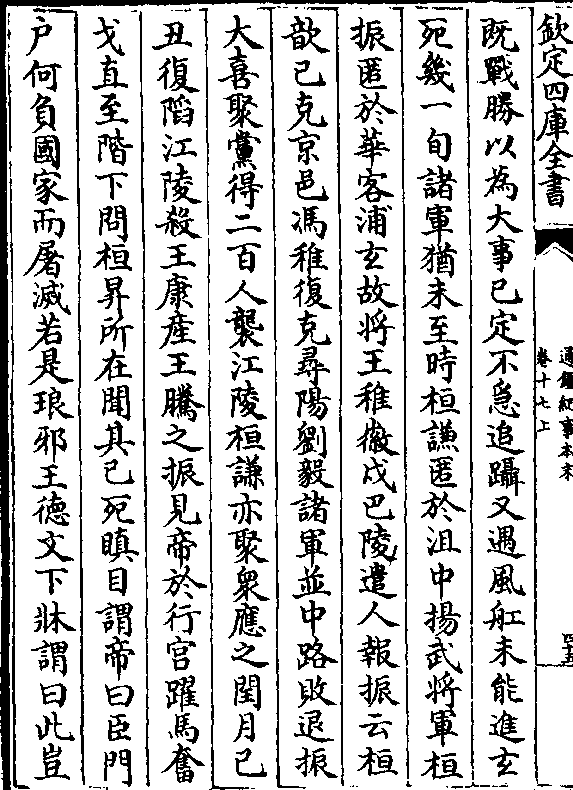 欽定四庫全書
通鑑紀事本末
卷十七上
四十五
既戰勝以為大事已定不急追躡又遇風舡未能進玄
死幾一旬諸軍猶未至時桓謙匿於沮中揚武將軍桓
振匿於華容浦玄故將王稚徽戍巴陵遣人報振云桓
歆已克京邑馮稚復克尋陽劉毅諸軍並中路敗退振
大喜聚黨得二百人襲江陵桓謙亦聚衆應之閏月己
丑復䧟江陵殺王康産王騰之振見帝於行宫躍馬奮
戈直至階下問桓昇所在聞其已死瞋目謂帝曰臣門
户何負國家而屠滅若是琅邪王徳文下牀謂曰此豈